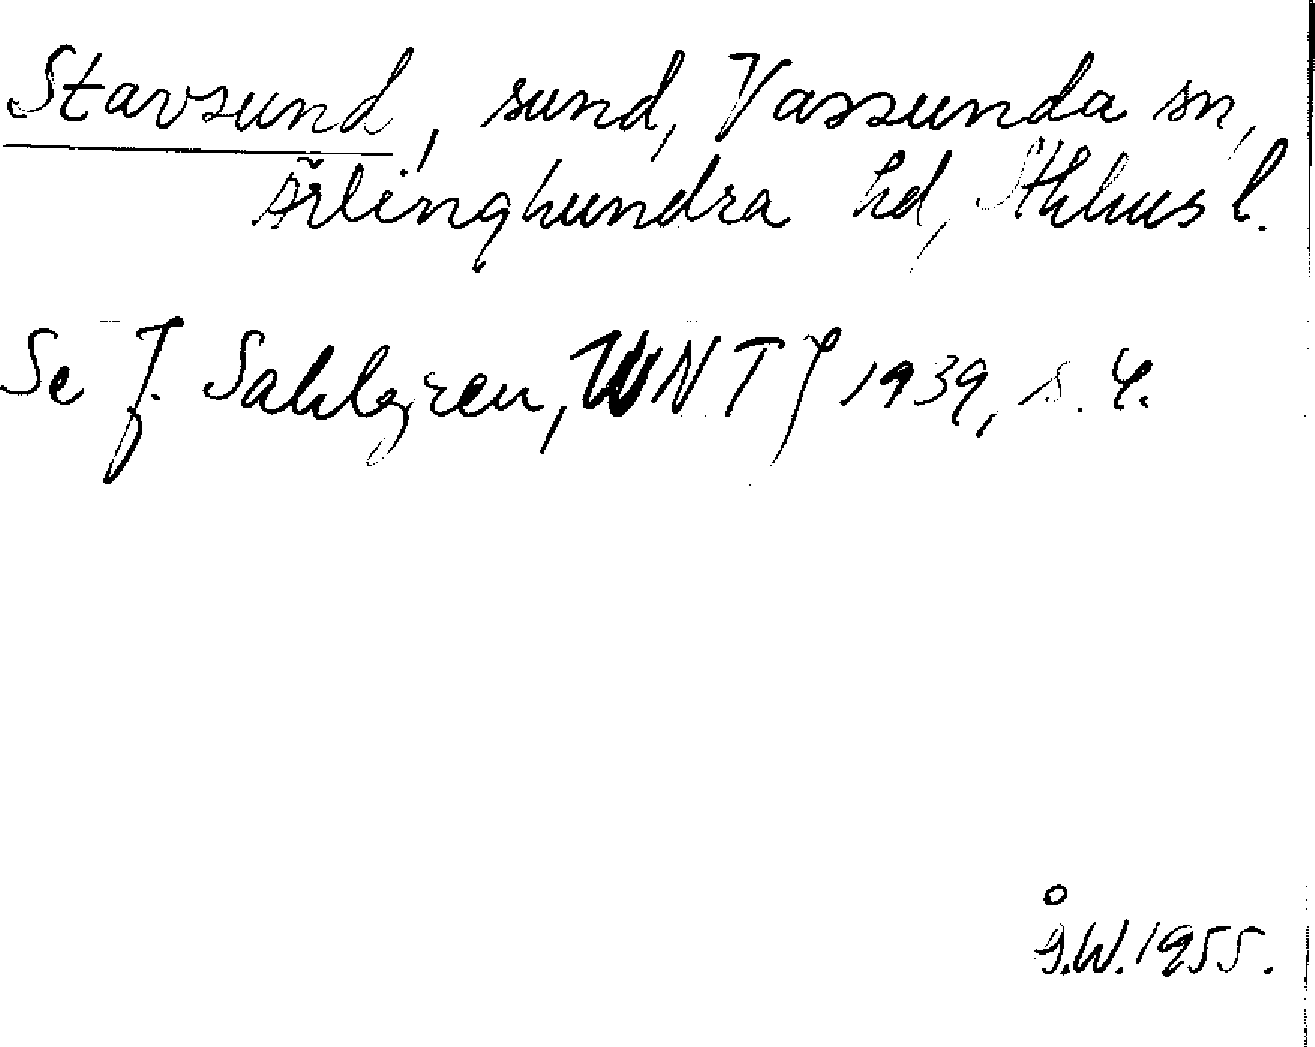 Stavsund, sund, Vassunda sn,
Ärlinghundra hd, Sthlms l.
Se J. Sahlgren, UNT 1939, s. 4.
Å.W. 1955.